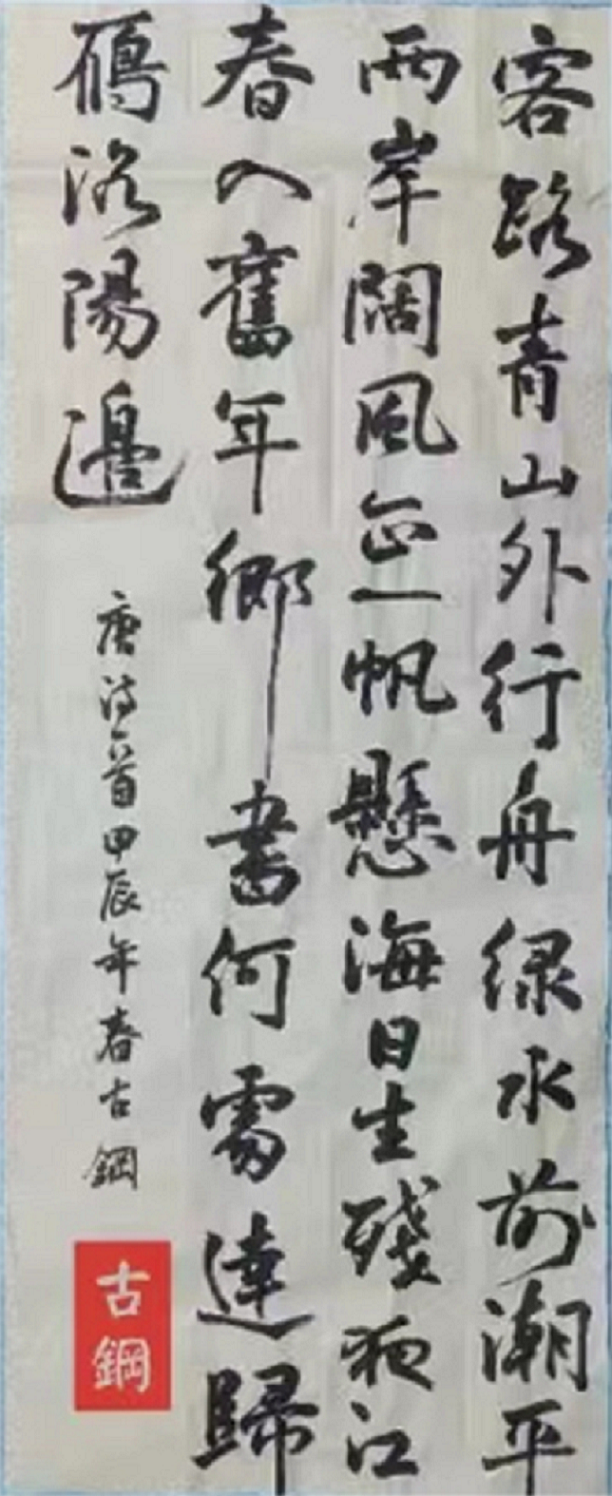 客路青山外行舟绿水前潮平
兩岸闊風正一帆懸海日生殘夜江
春入舊年鄉書何處達歸
鴈洛陽邊
唐诗一首甲辰年春古鋼
古鋼